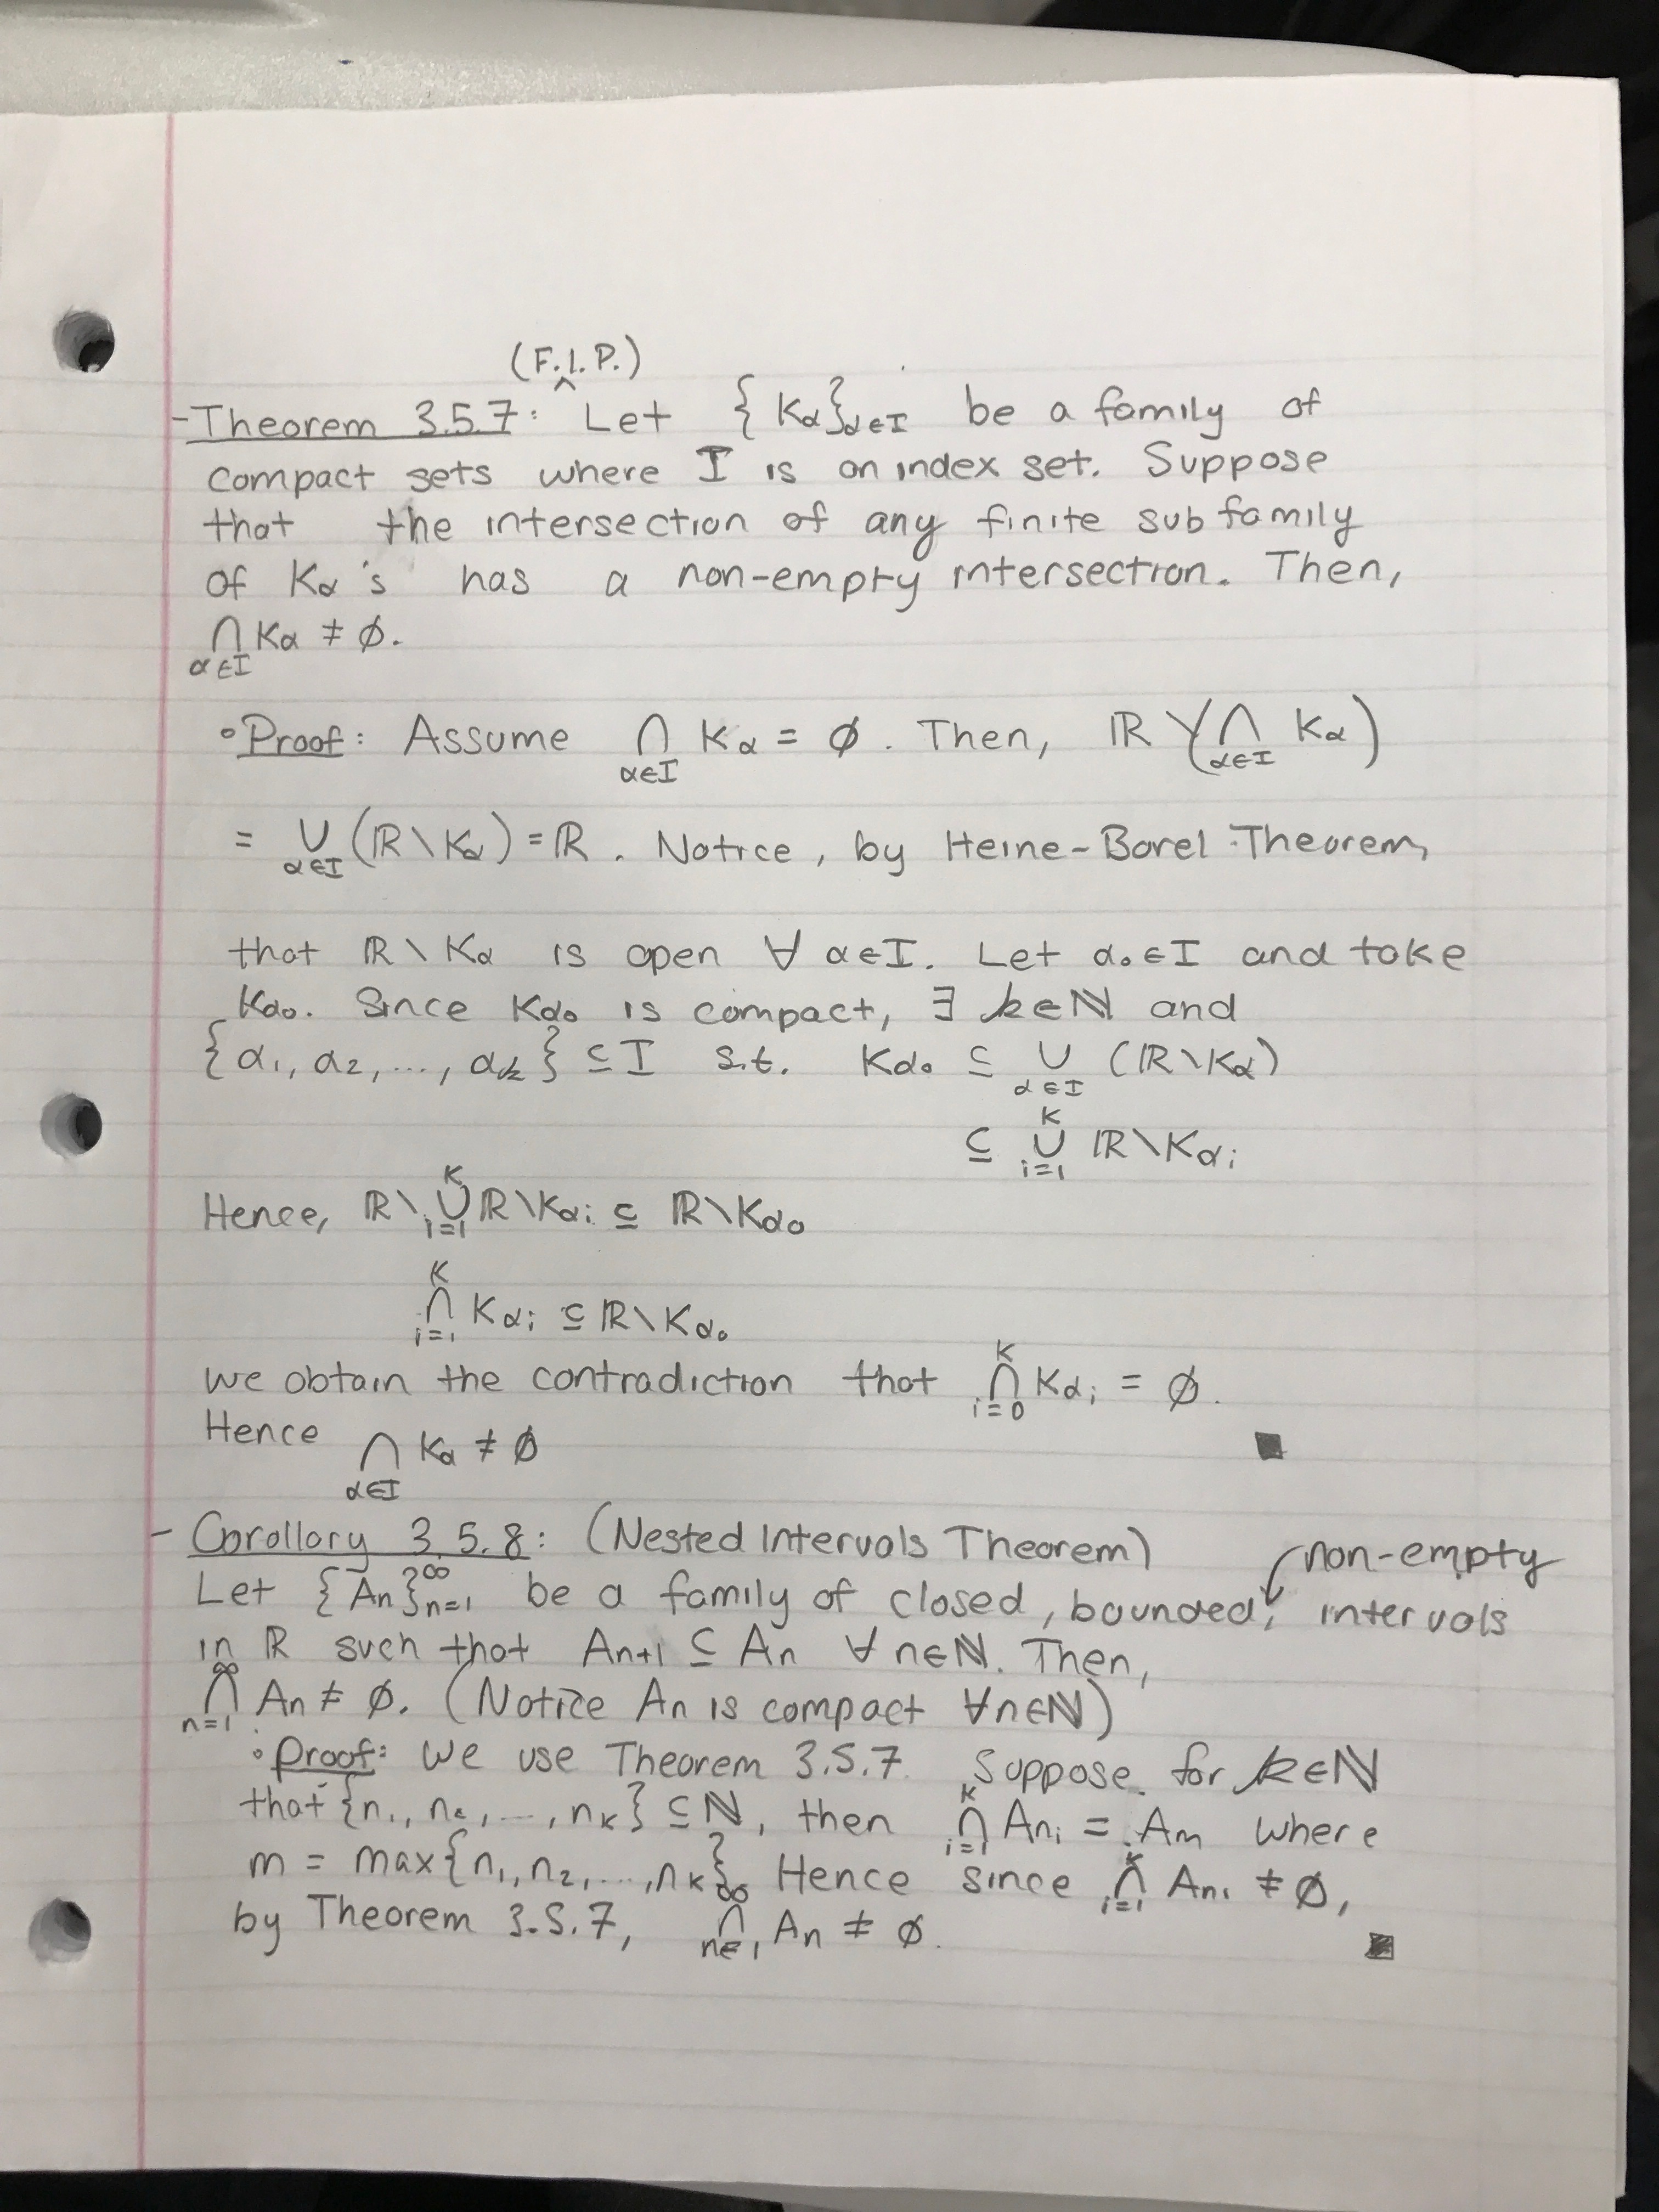 (F.I.P.)
- Theorem 3.5.7: ^ Let {Kα}α∈I be a family of
compact sets where I is an index set. Suppose
that the intersection of any finite subfamily
of Kα's has a non-empty intersection. Then,
⋂α∈I Kα ≠ ∅.
∘ Proof: Assume ⋂α∈I Kα = ∅. Then, ℝ \ (⋂α∈I Kα)
= ⋃α∈I (ℝ \ Kα) = ℝ. Notice, by Heine-Borel Theorem,
that ℝ \ Kα is open ∀ α∈I. Let α₀∈I and take
Kα₀. Since Kα₀ is compact, ∃ k∈ℕ and
{α₁, α₂, ..., αk} ⊆ I s.t. Kα₀ ⊆ ⋃α∈I (ℝ\Kα)
⊆ ⋃i=1^K ℝ\Kαi
Hence, ℝ\ ⋃i=1^K ℝ\Kαi ⊆ ℝ\Kα₀
⋂i=1^K Kαi ⊆ ℝ\Kα₀
we obtain the contradiction that ⋂i=0^K Kαi = ∅.
Hence ⋂α∈I Kα ≠ ∅ ■
- Corollary 3.5.8: (Nested Intervals Theorem)
non-empty
Let {An}n=1^∞ be a family of closed, bounded, intervals
in ℝ such that An+1 ⊆ An ∀ n∈ℕ. Then,
⋂n=1^∞ An ≠ ∅. (Notice An is compact ∀n∈ℕ)
∘ Proof: We use Theorem 3.5.7. Suppose for k∈ℕ
that {n₁, n₂, ..., nK} ⊆ ℕ, then ⋂i=1^K Ani = Am where
m = max{n₁, n₂, ..., nK}. Hence since ⋂i=1^K Ani ≠ ∅,
by Theorem 3.5.7, ⋂n∈1^∞ An ≠ ∅. ■